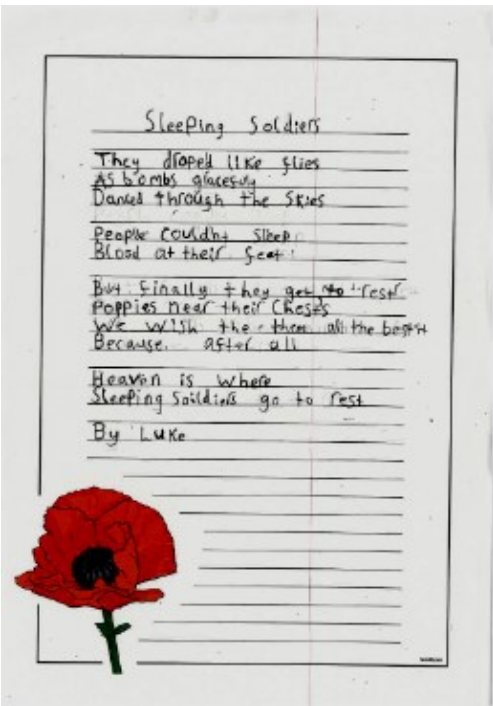 Sleeping Soldiers
They droped like flies
As bombs gracefuly
Danced through the Skies
People couldnt Sleep
Blood at their feet.
But finally they get to rest
Poppies near their Chests
We wish the them all the bestt
Because after all
Heaven is where
Sleeping Soildiers go to rest
By Luke